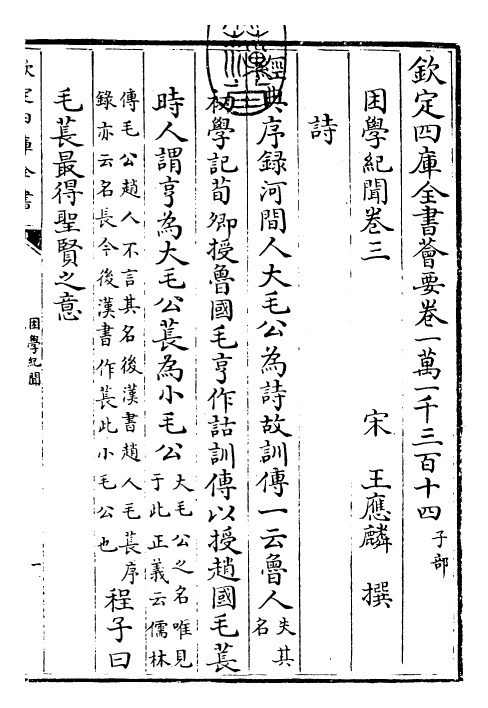 欽定四庫全書薈要卷一萬一千三百十四子部
困學紀聞卷三
宋 王應麟 撰
詩
經典序録河間人大毛公為詩故訓傳一云魯人失其名
初學記荀卿授魯國毛亨作詁訓傳以授趙國毛萇
時人謂亨為大毛公萇為小毛公大毛公之名唯見于此正義云儒林
傳毛公趙人不言其名後漢書趙人毛萇序録亦云名長今後漢書作萇此小毛公也程子曰
毛萇最得聖賢之意
欽定四庫全書
困學紀聞
一